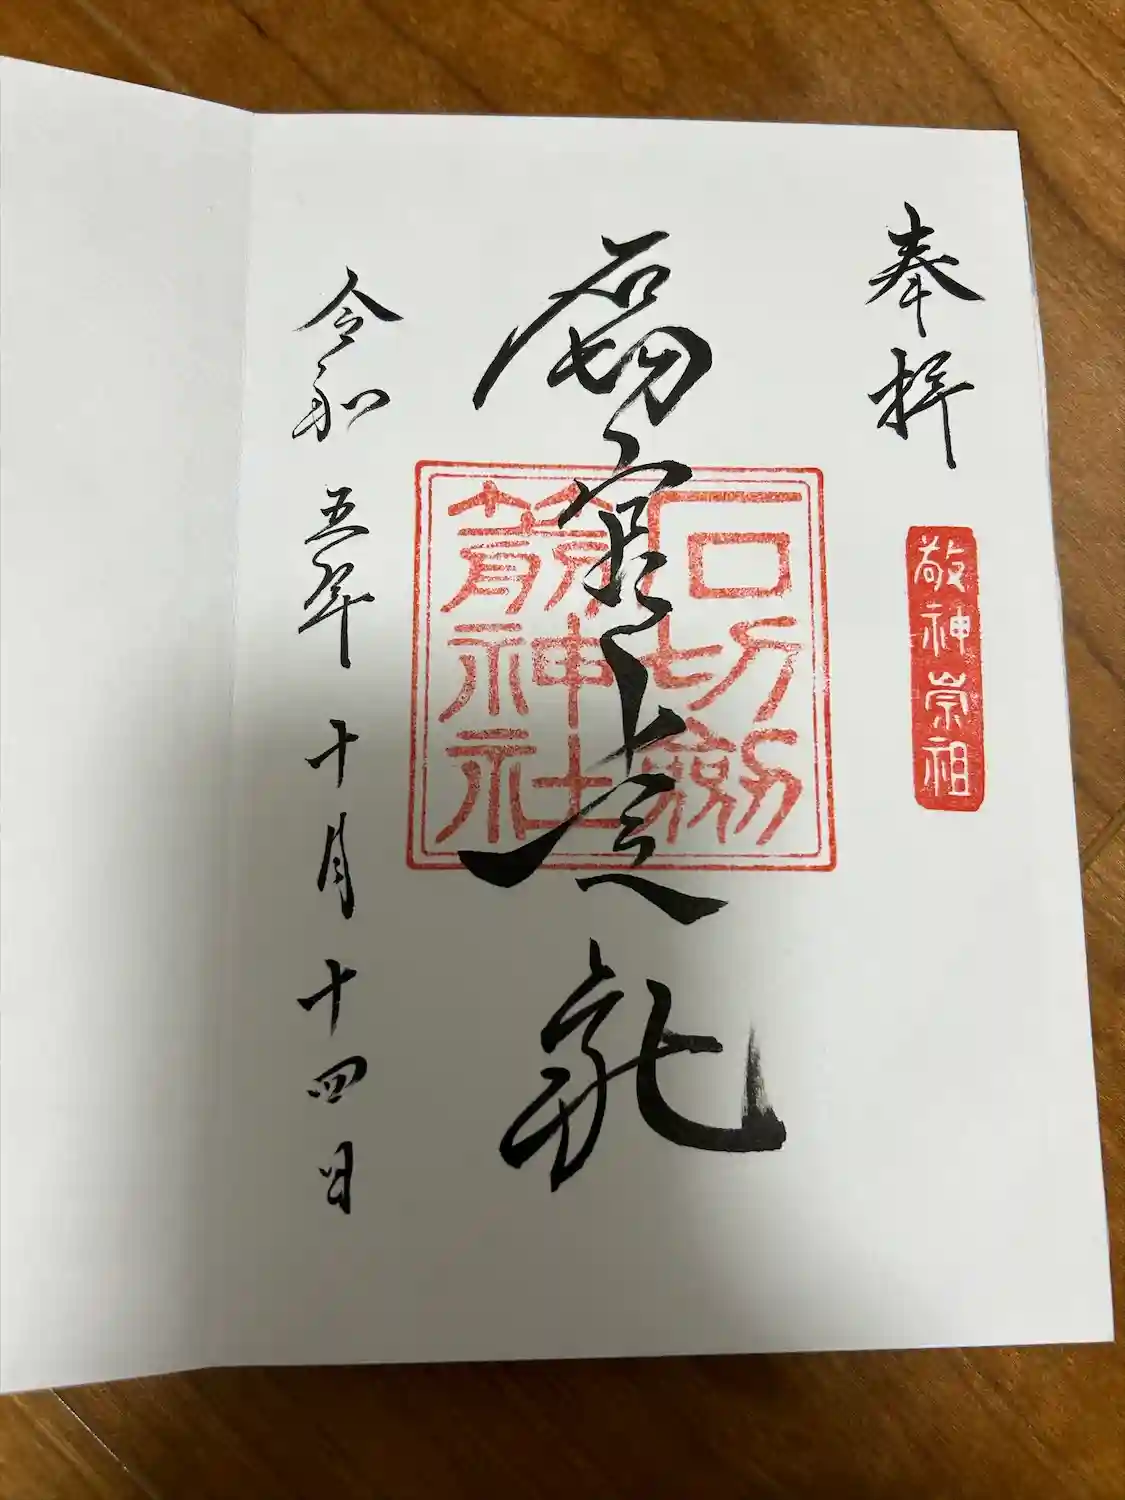 奉拝
敬神崇祖
石切宮上之社
石切劔
箭神社
令和五年十月十四日